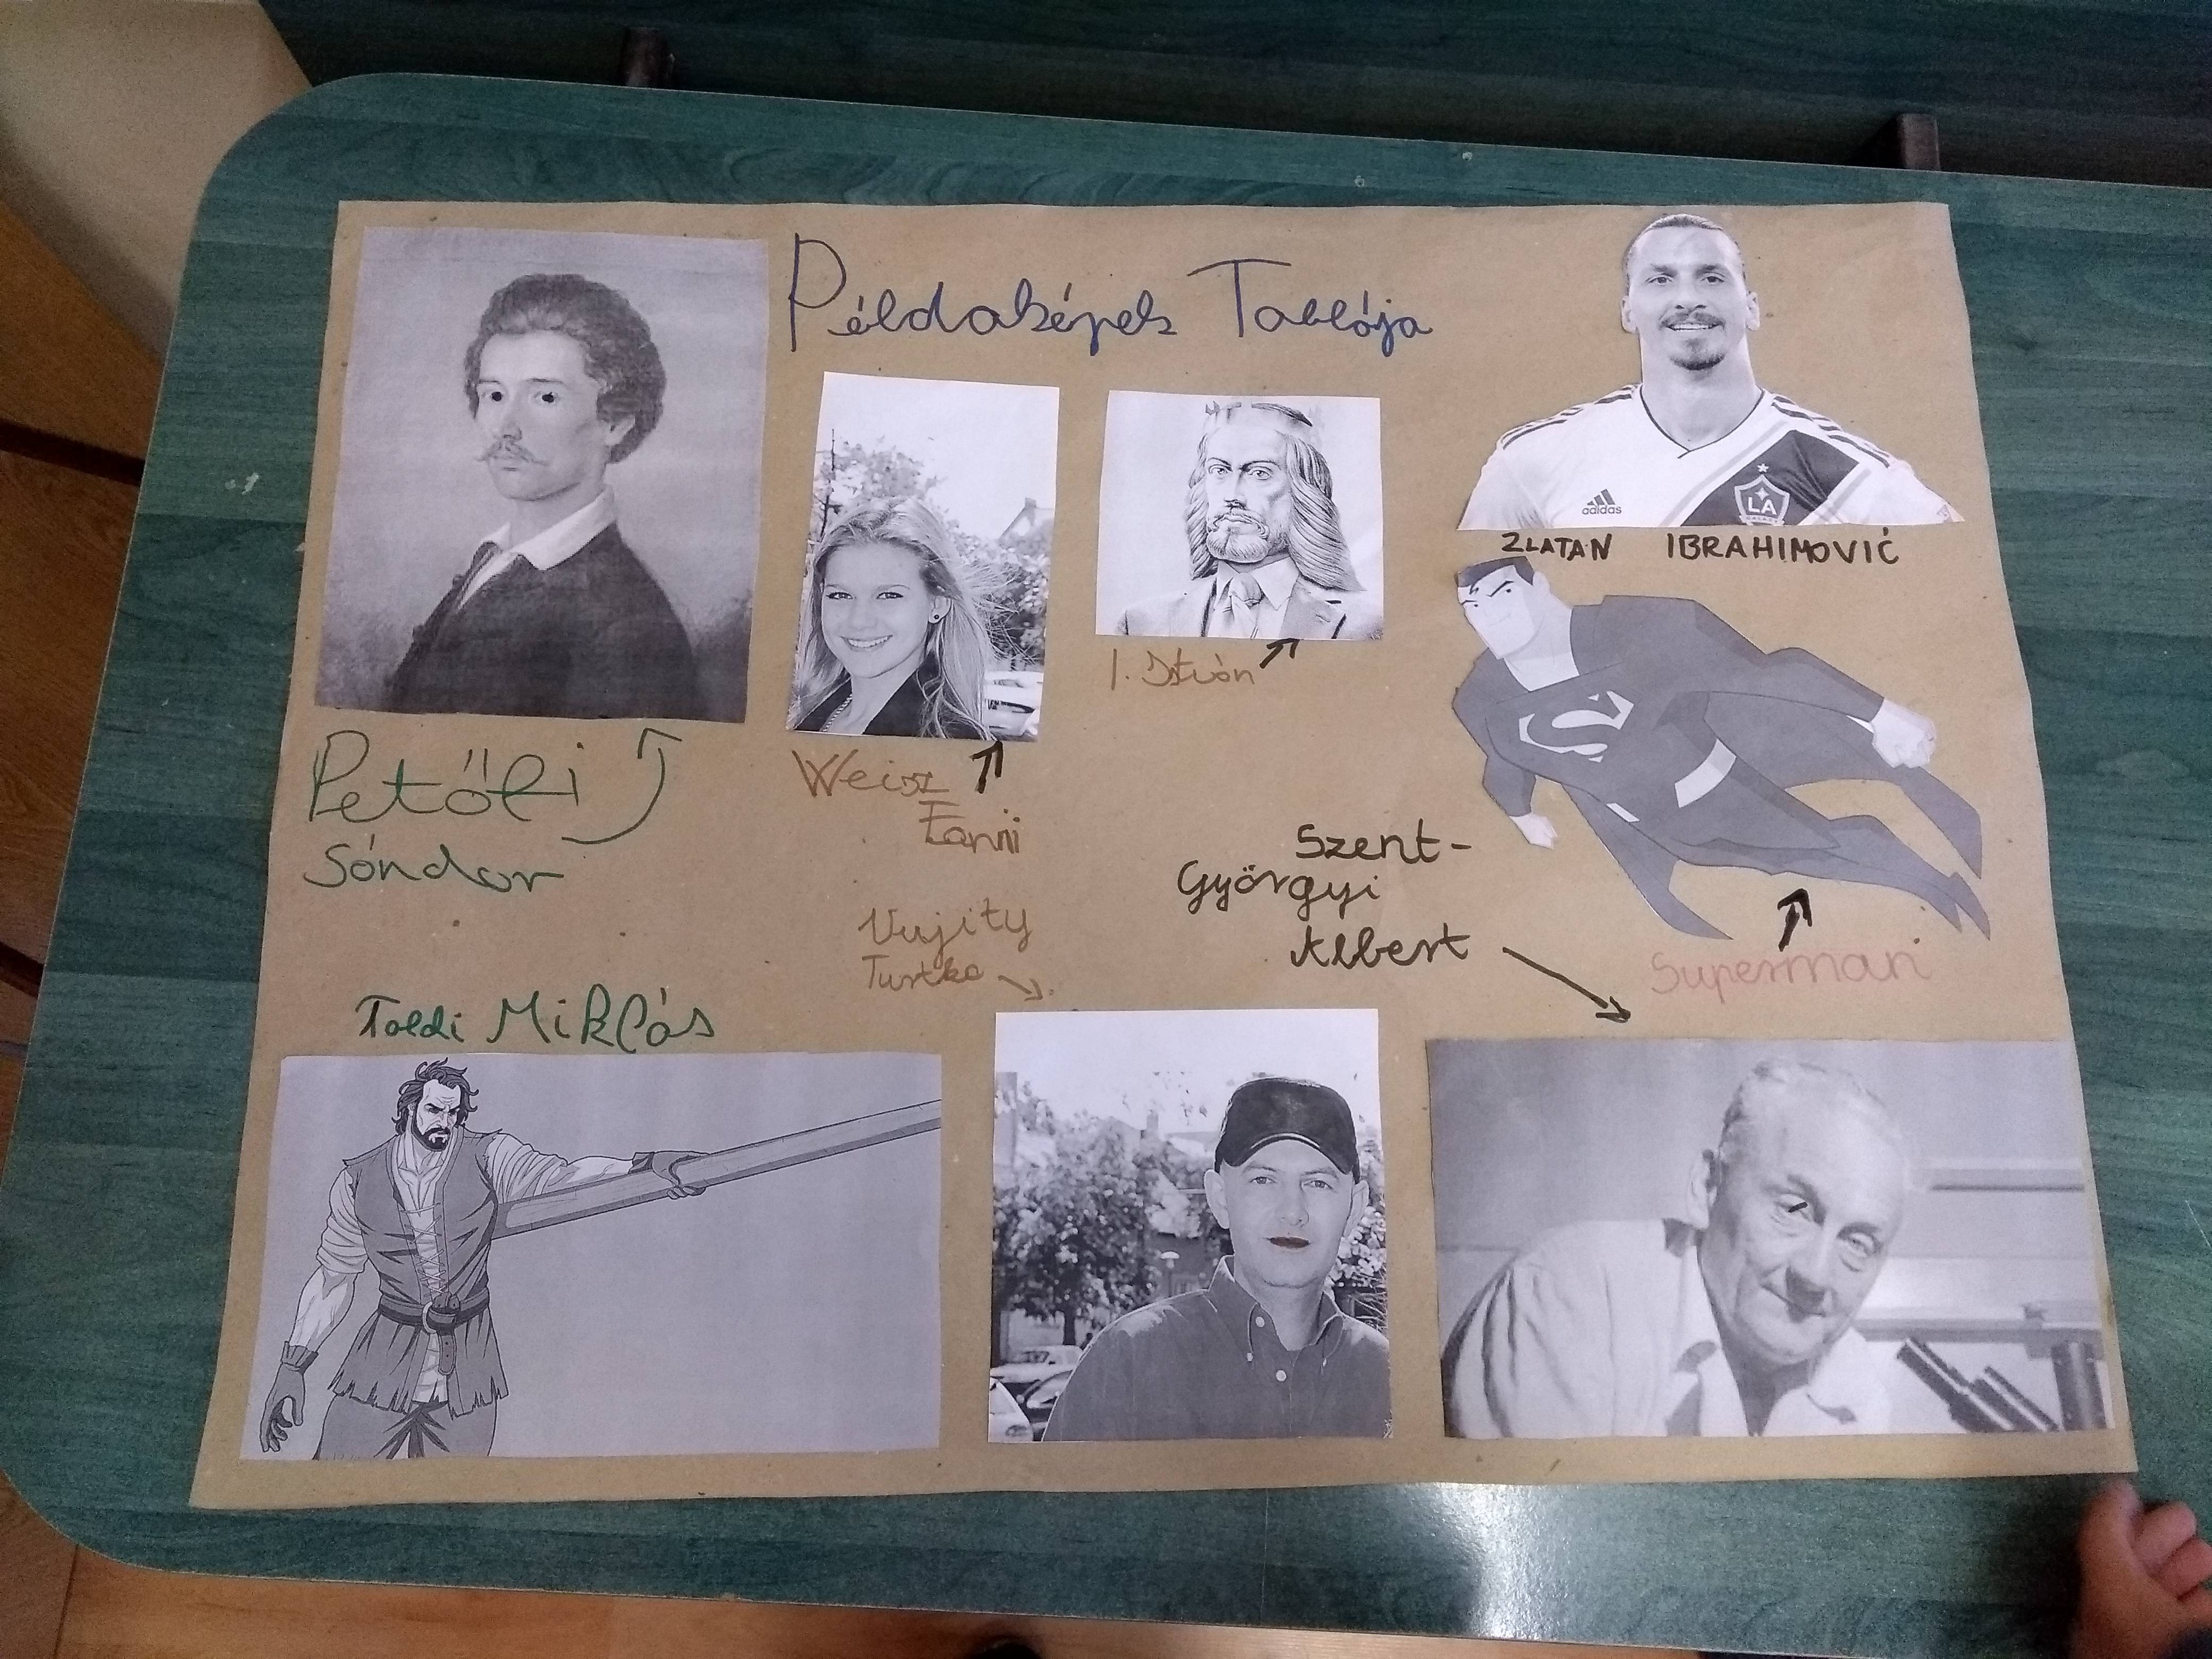 Példaképek Tablója
adidas
LA
GALAXY
ZLATAN IBRAHIMOVIĆ
I. István
Petőfi
Sándor
Weisz
Fanni
Szent-
Györgyi
Albert
Superman
Vujity
Tvrtko
Toldi Miklós